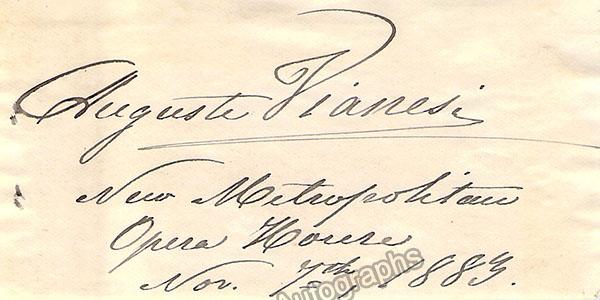 Auguste Vianesi
New Metropolitan
Opera House
Nov. 7th 1883.
Autographs